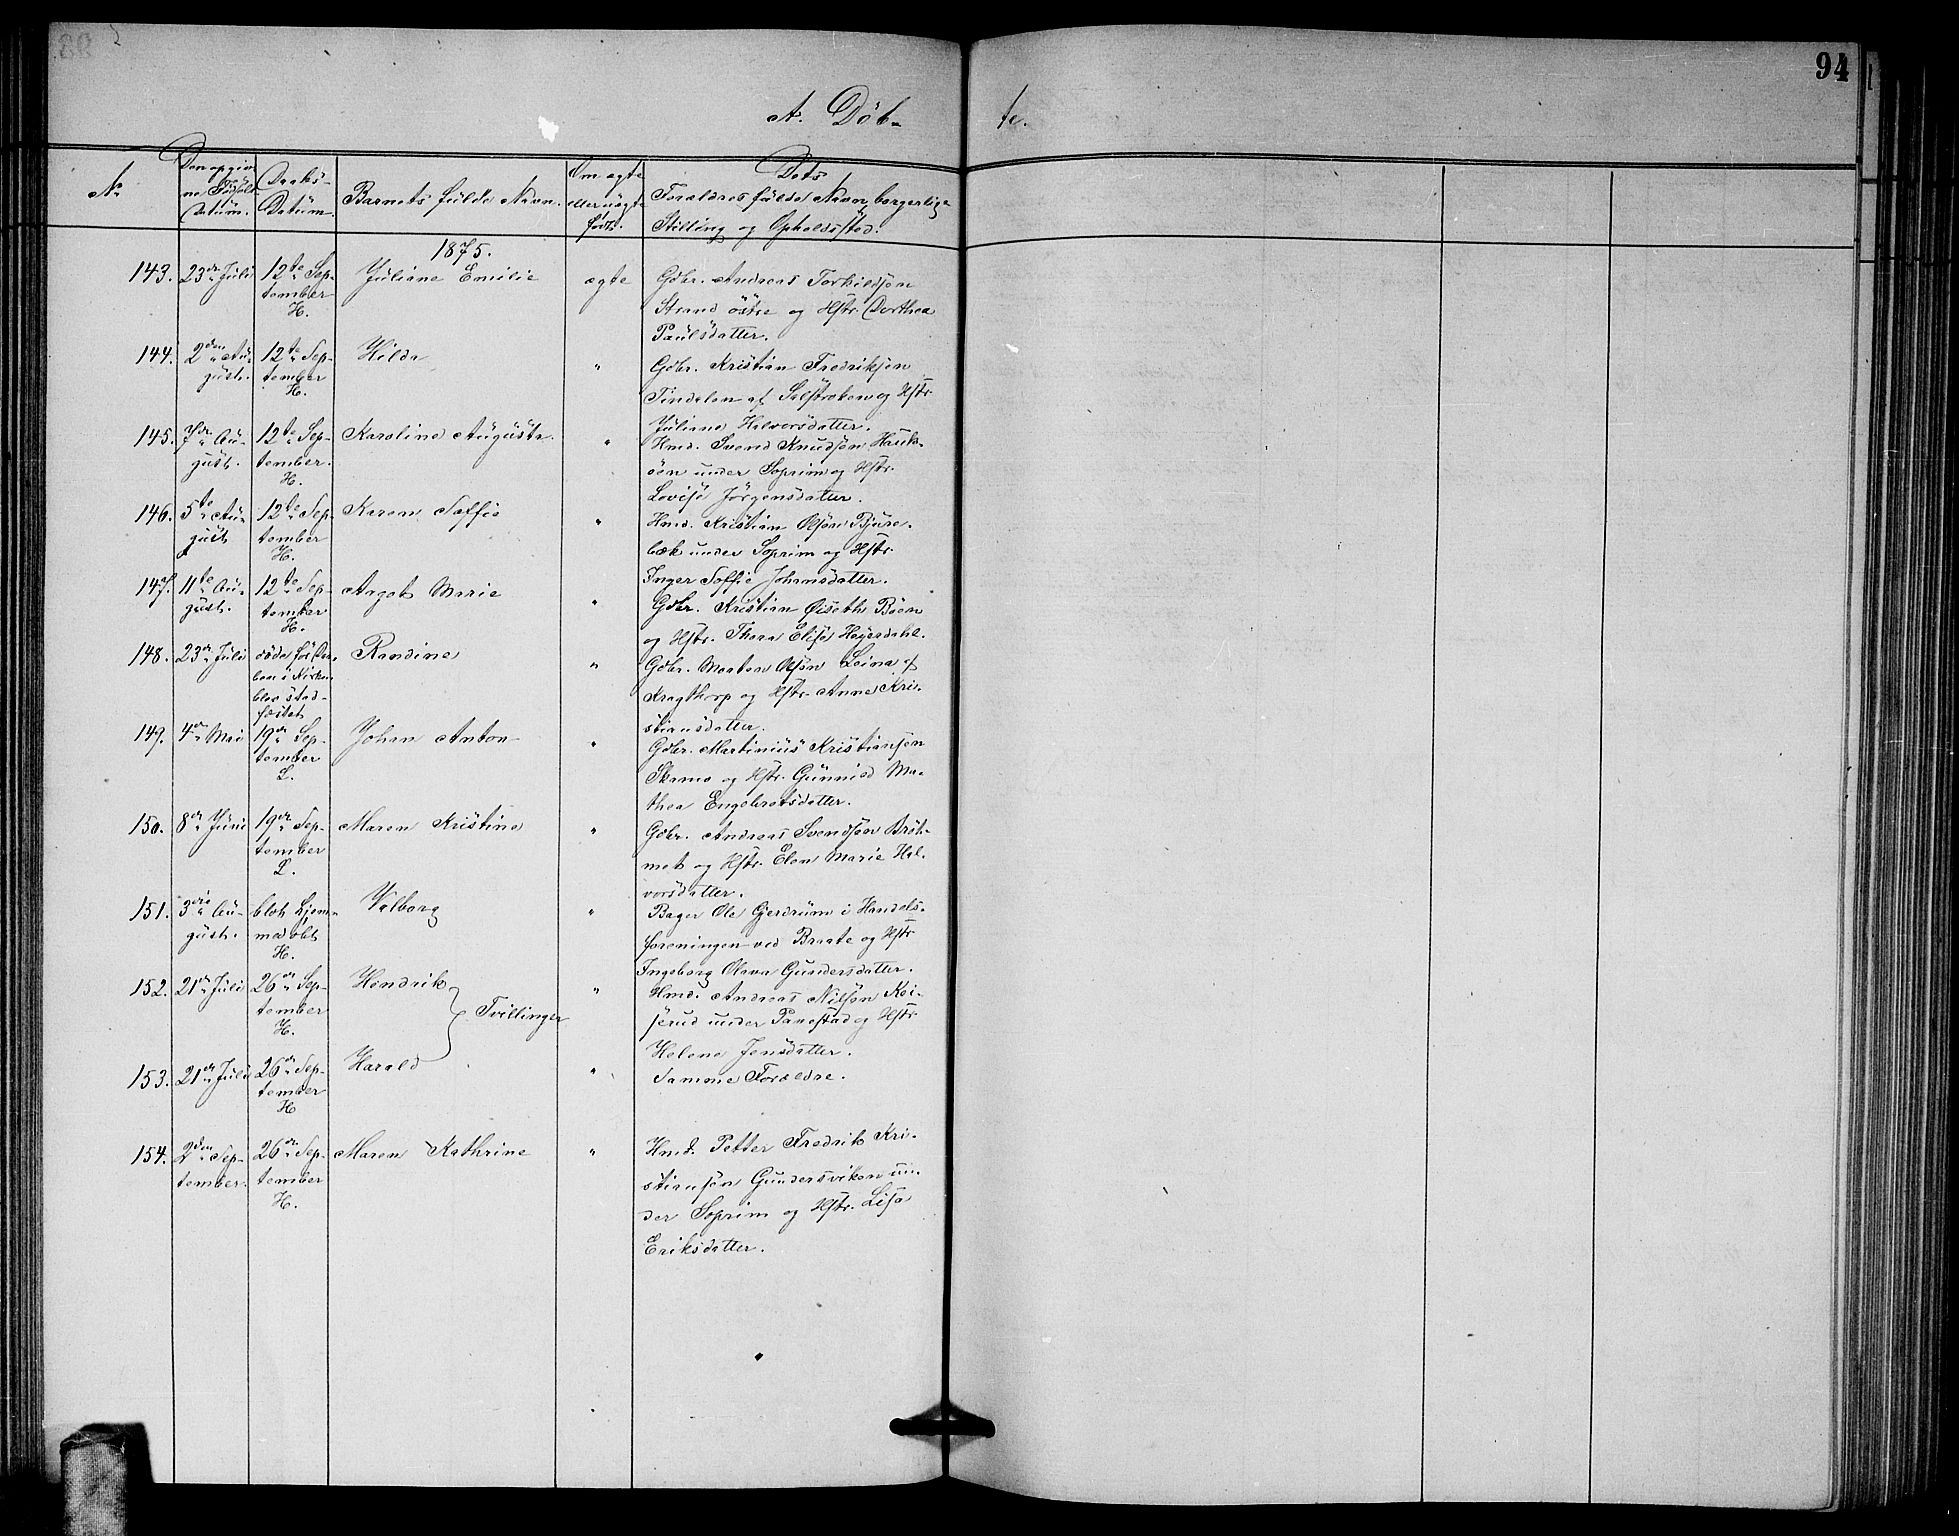 94
A. Döb-
te.
No
Den opgiv
ne Födsels
Datüm.
Daabs-
Datüm.
Barnets fülde Navn.
Om ægte
eller üægte
födt.
Dets
Forældres fülde Navn, borgerlige
Stilling og Opholdsstad.
1875.
143.
23de Juli
12te Sep-
tember
H.
Juliane Emilie
ægte
Gdbr. Andreas Torkildsøn
Strand östre og Hstr. Dorthea
Paülsdatter.
144.
2den Aü-
güst.
12te Sep-
tember
H.
Hilda
"
Gdbr. Kristian Fredriksøn
Tindelen af Sölstroken og Hstr
Juliane Halvorsdatter.
145.
7de Aü-
güst.
12te Sep-
tember.
H.
Karoline Aügüsta.
"
Hmd. Svend Knudsøn Haük-
øen under Soprim og Hstr.
Lovise Jörgensdatter.
146.
5te Aü-
güst
12te Sep-
tember
H.
Karen Soffie
"
Hmd. Kristian Olsøn Bjüre-
bæk under Soprim og Hstr.
Inger Soffie Johansdatter.
147.
11te Aü-
güst.
12te Sep-
tember
H.
Aagot Marie
"
Gdbr. Kristian Øiseth Böen
og Hstr. Thora Elise Heyerdahl.
148.
23de Juli
døde før Daa-
ben i Kirken
blev stad-
fæstet
Randine
"
Gdbr. Morten Olsøn Leina af
Kragthorp og Hstr. Anne Kri-
stiansdatter.
149.
4de Mai
19de Sep-
tember
L.
Johan Anton
"
Gdbr. Martinius Kristiansøn
Skamo og Hstr. Günnild Ma-
thea Engebretsdatter.
150.
8de Juni
19de Sep-
tember
L.
Maren Kristine
"
Gdbr. Andreas Svendsøn Bröt-
met og Hstr. Elen Marie Hal-
vorsdatter.
151.
3die Aü-
güst.
blot hjem-
medøbt
H.
Valborg
"
Bager Ole Gjerdrum i Handels-
foreningen ved Braate og Hstr
Ingeborg Olava Gundersdatter.
152.
21de Juli
26de Sep-
tember
H.
Hendrik
Tvillinger
"
Hmd. Andreas Nilsøn Kei-
serud under Panestad og Hstr
Helene Jensdatter.
153.
21de Juli
26de Sep-
tember
H
Harald
"
Samme Forældre.
154.
2den Sep-
tember.
26de Sep-
tember
H.
Maren Kathrine
"
Hmd. Petter Fredrik Kri-
stiansøn Gundersviken un-
der Soprim og Hstr. Lisa
Eriksdatter.